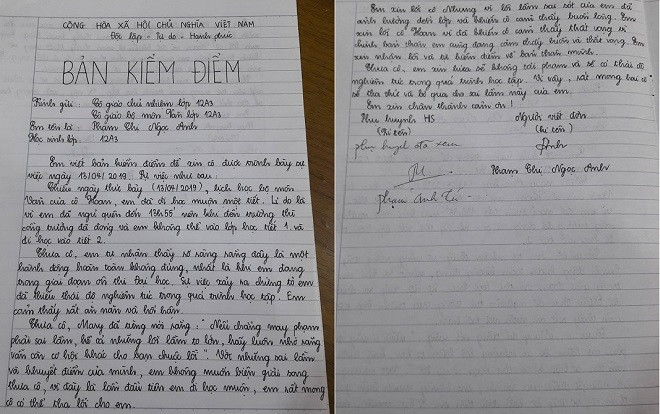 CỘNG HÒA XÃ HỘI CHỦ NGHĨA VIỆT NAM
Độc lập - Tự do - Hạnh phúc
BẢN KIỂM ĐIỂM
Kính gửi : Cô giáo chủ nhiệm lớp 12A3
Cô giáo bộ môn Văn lớp 12A3
Em tên là : Phạm Thị Ngọc Anh
Học sinh lớp : 12A3
Em viết bản kiểm điểm để xin cô được trình bày sự
việc ngày 13/04/2019. Sự việc như sau :
Chiều ngày thứ bảy (13/04/2019), lịch học bộ môn
Văn của cô Hoan, em đã đi học muộn một tiết. Lí do là
vì em đã ngủ quên đến 13h55' nên khi đến trường thì
cổng trường đã đóng và em không thể vào lớp học tiết 1 và
đi học vào tiết 2.
Thưa cô, em tự nhận thấy rõ ràng rằng đây là một
hành động hoàn toàn không đúng, nhất là khi em đang
trong giai đoạn ôn thi Đại học. Sự việc xảy ra chứng tỏ em
đã thiếu thái độ nghiêm túc trong quá trình học tập. Em
cảm thấy rất ăn năn và hối hận.
Thưa cô, Mary đã từng nói rằng : " Nếu chẳng may phạm
phải sai lầm, kể cả những lỗi lầm to lớn, hãy luôn nhớ rằng
vẫn còn cơ hội khác cho bạn chuộc lỗi ". Với những sai lầm
và khuyết điểm của mình, em không muốn biện giải song
thưa cô, vì đây là lần đầu tiên em đi học muộn, em rất mong
cô có thể tha lỗi cho em.
Em xin lỗi cô Nhung vì lỗi lầm sai sót của em đã
ảnh hưởng đến lớp và khiến cô cảm thấy buồn lòng. Em
xin lỗi cô Hoan vì đã khiến cô cảm thấy thất vọng vì
chính bản thân em cũng đang cảm thấy buồn và thất vọng. Em
xin nhận lỗi và tự kiểm điểm về bản thân mình.
Thưa cô, em xin hứa sẽ không tái phạm và sẽ có thái độ
nghiêm túc trong quá trình học tập. Vì vậy, rất mong hai cô
sẽ tha thứ và bỏ qua cho sai lầm này của em.
Em xin chân thành cảm ơn !
Phụ huynh HS Người viết đơn
(Kí tên) (Kí tên)
phụ huynh đã xem Anh
Phạm Thị Ngọc Anh
Phạm Anh